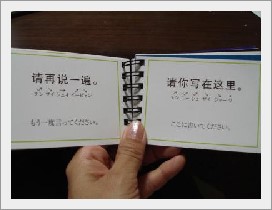 请再说一遍。
もう一度言ってください。
请你写在这里。
ここに書いてください。